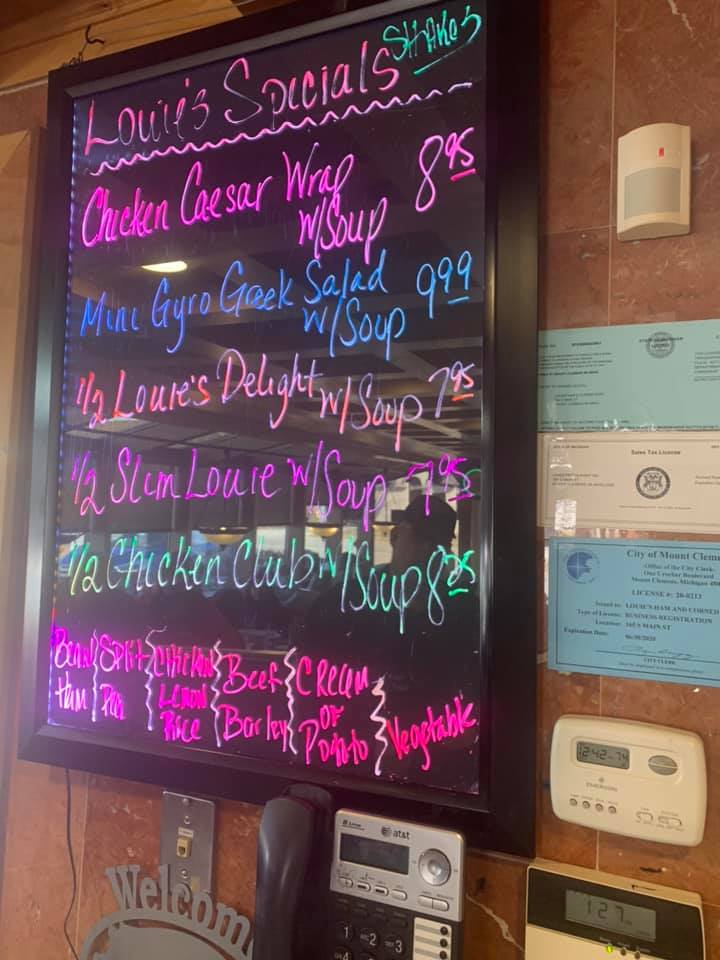 SHAKES
Louie's Specials
Chicken Caesar Wrap 8 95
w/Soup
Mini Gyro Greek Salad 9 99
w/Soup
1/2 Louie's Delight w/Soup 7 95
1/2 Slim Louie w/Soup 7 95
1/2 Chicken Club w/Soup 8 25
Bean Ham
Split Pea
Chicken Lemon Rice
Beef Barley
Cream of Potato
Vegetable
Sales Tax License
City of Mount Clem
Office of the City Clerk
One Crocker Boulevard
Mount Clemens, Michigan
LICENSE #: 20-0213
Issued to: LOUIE'S HAM AND CORNED
Type of License: BUSINESS REGISTRATION
Location: 165 S MAIN ST
Expiration Date: 06/30/2020
CITY CLERK
12:42 74
EMERSON
at&t
1 2 3
127
Welcom